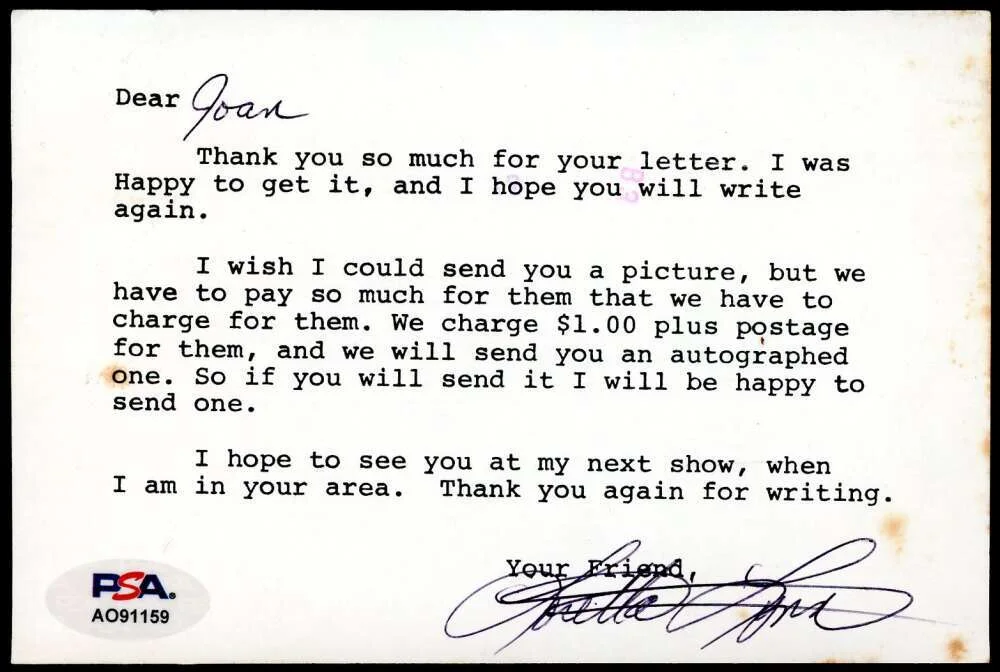 Dear Joan
Thank you so much for your letter. I was
Happy to get it, and I hope you will write
again.
I wish I could send you a picture, but we
have to pay so much for them that we have to
charge for them. We charge $1.00 plus postage
for them, and we will send you an autographed
one. So if you will send it I will be happy to
send one.
I hope to see you at my next show, when
I am in your area. Thank you again for writing.
Your Friend,
Loretta Lynn
PSA.
AO91159